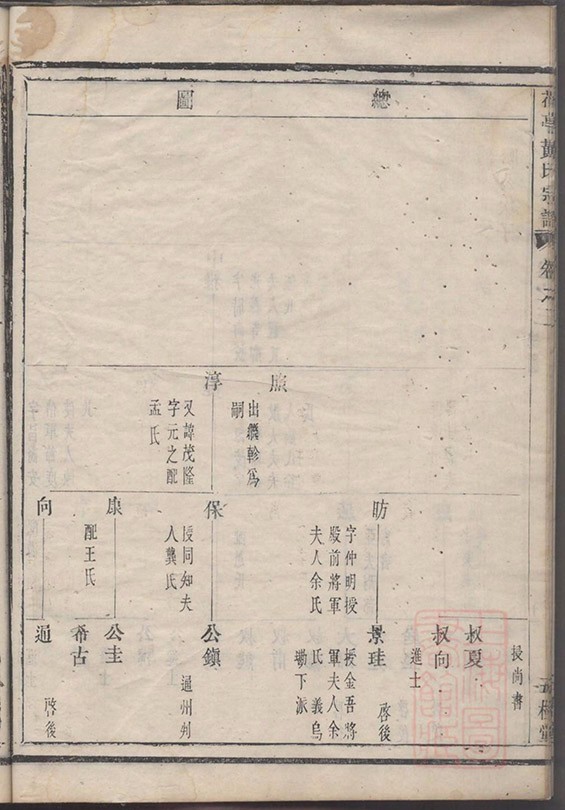 總圖
授尚書
叔夏
叔向
進士
昉
字仲明授
殿前將軍
夫人余氏
景珪
授金吾將
軍夫人余
氏義烏
塘下派
啓後
出繼軫為
嗣
淳
又諱茂隆
字元之配
孟氏
保
授同知夫
人龔氏
公鎮
通州判
康
配王氏
公圭
希古
向
通
啓後
黃氏宗譜
卷之二